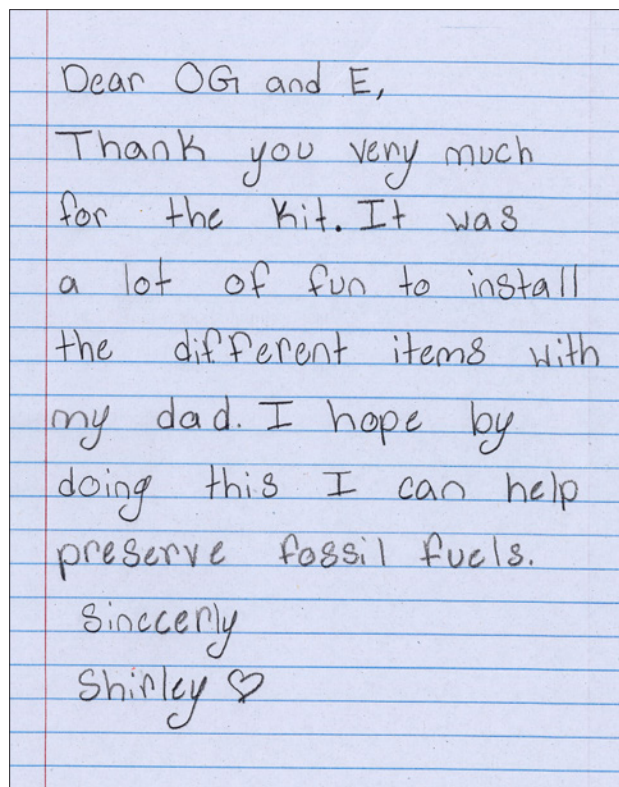 Dear OG and E,
Thank you very much
for the kit. It was
a lot of fun to install
the different items with
my dad. I hope by
doing this I can help
preserve fossil fuels.
Sincerly
Shirley ♡